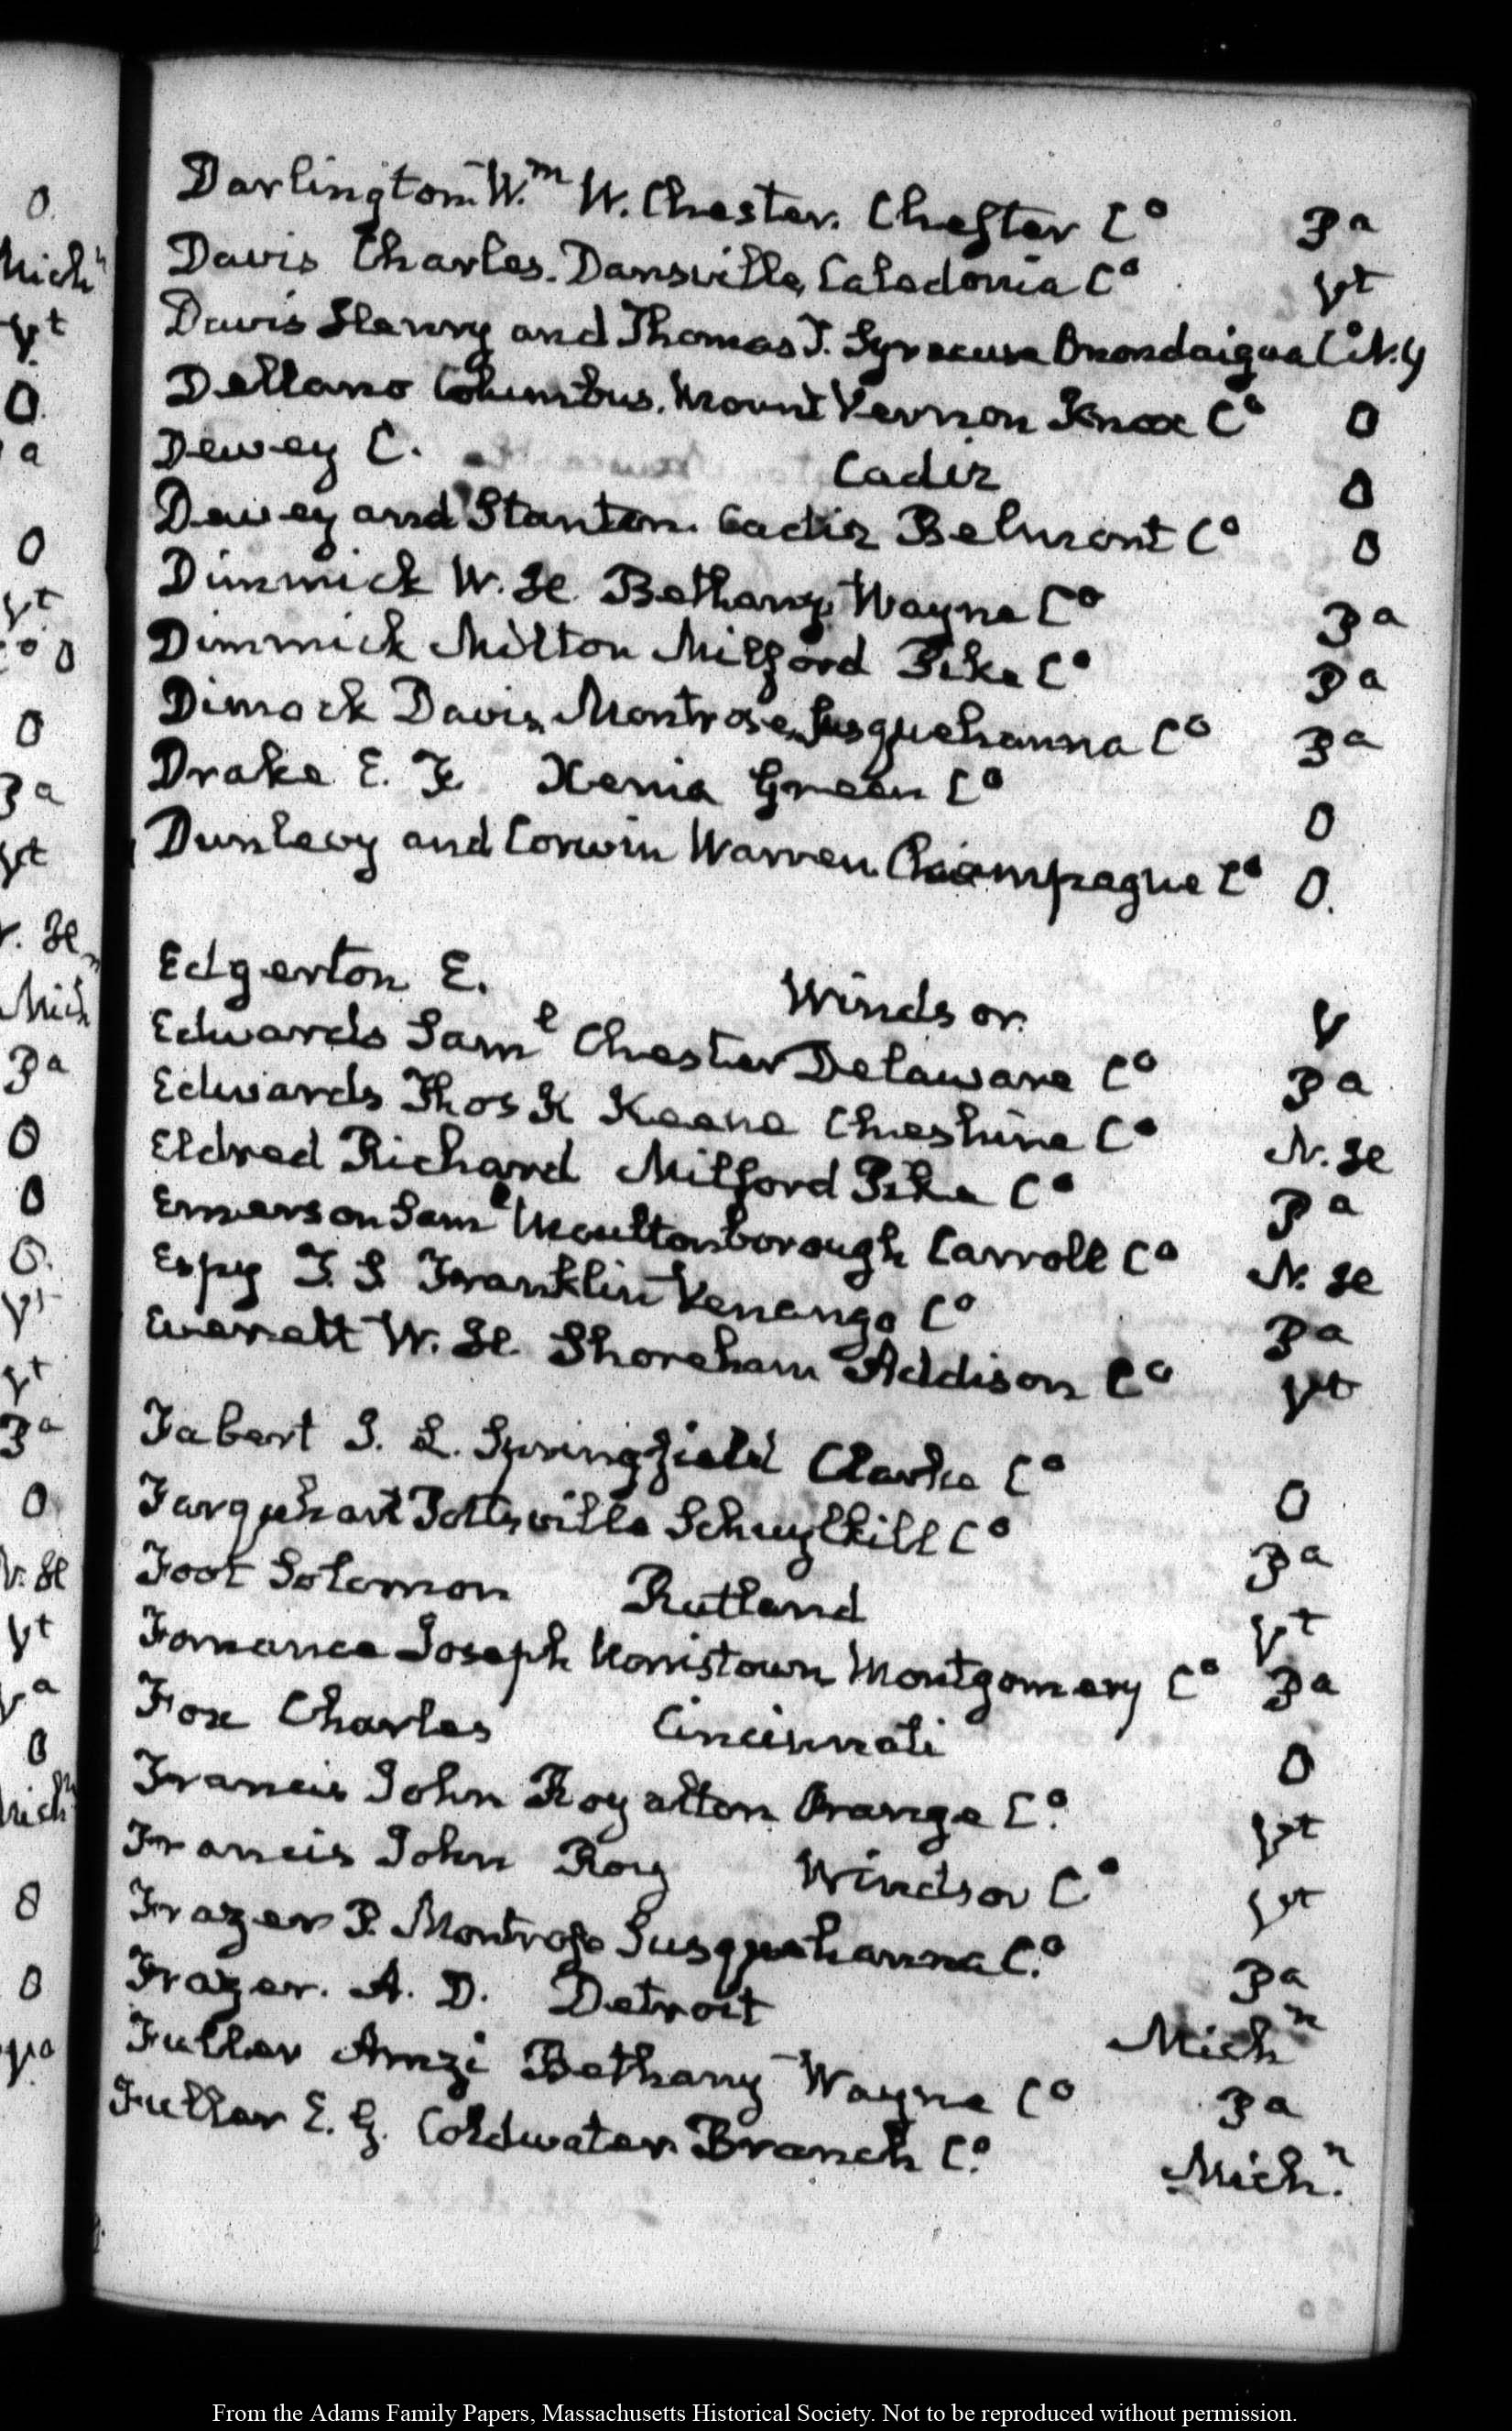 Darlington Wm W. Chester. Chester Co Pa
Davis Charles. Dansville, Caledonia Co Vt
Davis Henry and Thomas T. Syracuse Onondaigua Co N.Y
Dellano Columbus. Mount Vernon Knox Co O
Dewey C. Cadiz O
Dewey and Stanton. Cadiz Belmont Co O
Dimmick W. H. Bethany, Wayne Co Pa
Dimmick Milton Milford Pike Co Pa
Dimock Davis, Montrose, Susquehanna Co Pa
Drake E. F. Xenia Green Co O
Dunlavy and Corwin Warren. Champague Co O.
Edgerton E. Windsor. V
Edwards Saml Chester Delaware Co Pa
Edwards Thos K Keene Cheshire Co N. H
Eldred Richard Milford Pike Co Pa
Emerson Saml Moultonborough Carroll Co N. H
Espy T. S. Franklin Venango Co Pa
Everett W. H. Shoreham Addison Co Vt
Fabert J. L. Springfield Clarke Co O
Farquhart Pottsville Schuylkill Co Pa
Foot Solomon Rutland Vt
Fornance Joseph Norristown Montgomery Co Pa
Fox Charles Cincinnati O
Francis John Royalton Orange Co. Vt
Francis John Roy Windsor Co Vt
Frazer P. Montrose Susquehanna Co. Pa
Frazer. A. D. Detroit Michn
Fuller Amzi Bethany Wayne Co Pa
Fuller E. G. Coldwater Branch Co. Michn.
From the Adams Family Papers, Massachusetts Historical Society. Not to be reproduced without permission.